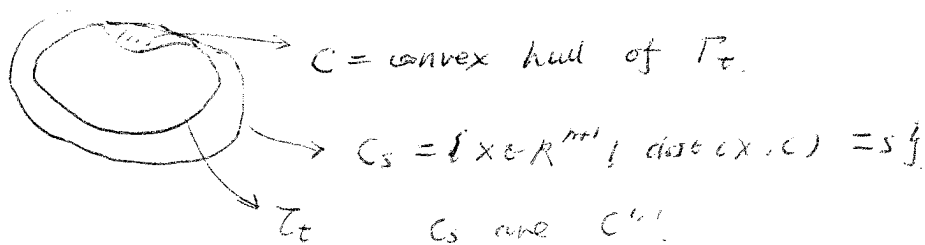 C = convex hull of Γ_t.
C_s = { x ∈ R^{n+1} | dist (x, C) = s }
Γ_t    C_s are C^{1,1}.